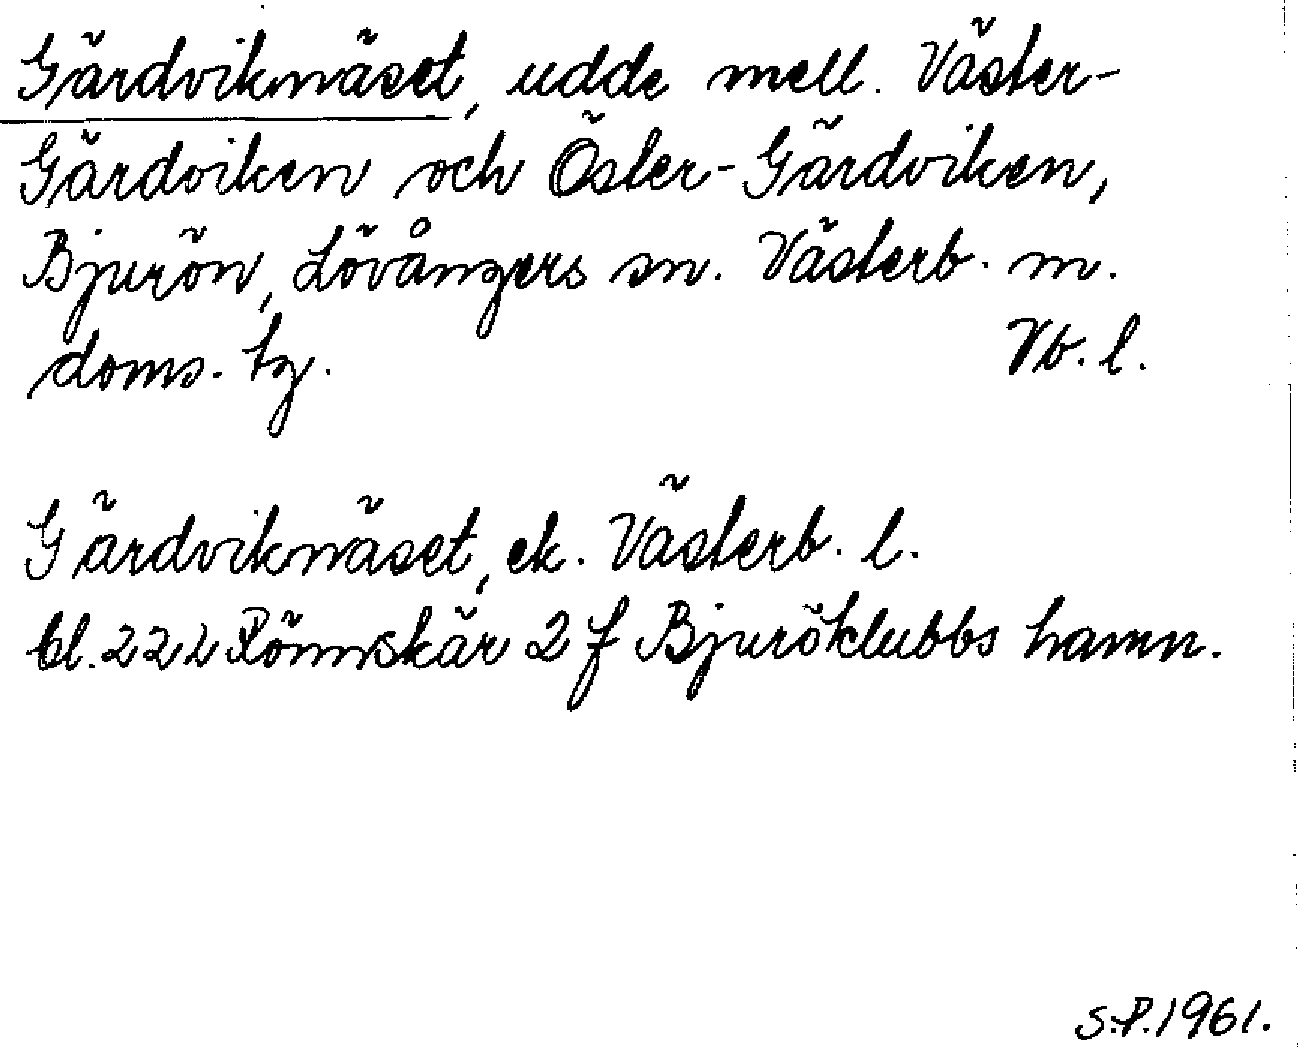 Gärdviknäset, udde mell. Väster-
Gärdviken och Öster-Gärdviken,
Bjurön, Lövångers sn. Västerb. m.
doms. tg. Vb. l.
Gärdviknäset, ek. Västerb. l.
bl. 22 L Rönnskär 2 f Bjuröklubbs hamn.
S.P. 1961.